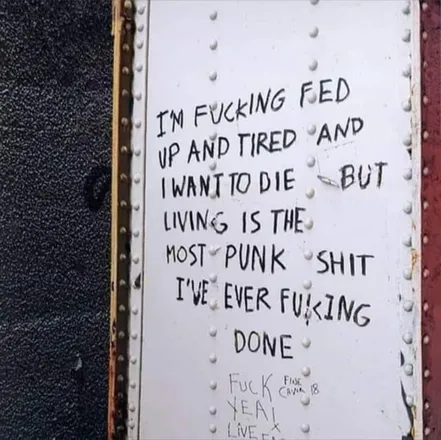 I'M FUCKING FED
UP AND TIRED AND
I WANT TO DIE BUT
LIVING IS THE
MOST PUNK SHIT
I'VE EVER FUCKING
DONE
FUCK
YEA!
LIVE